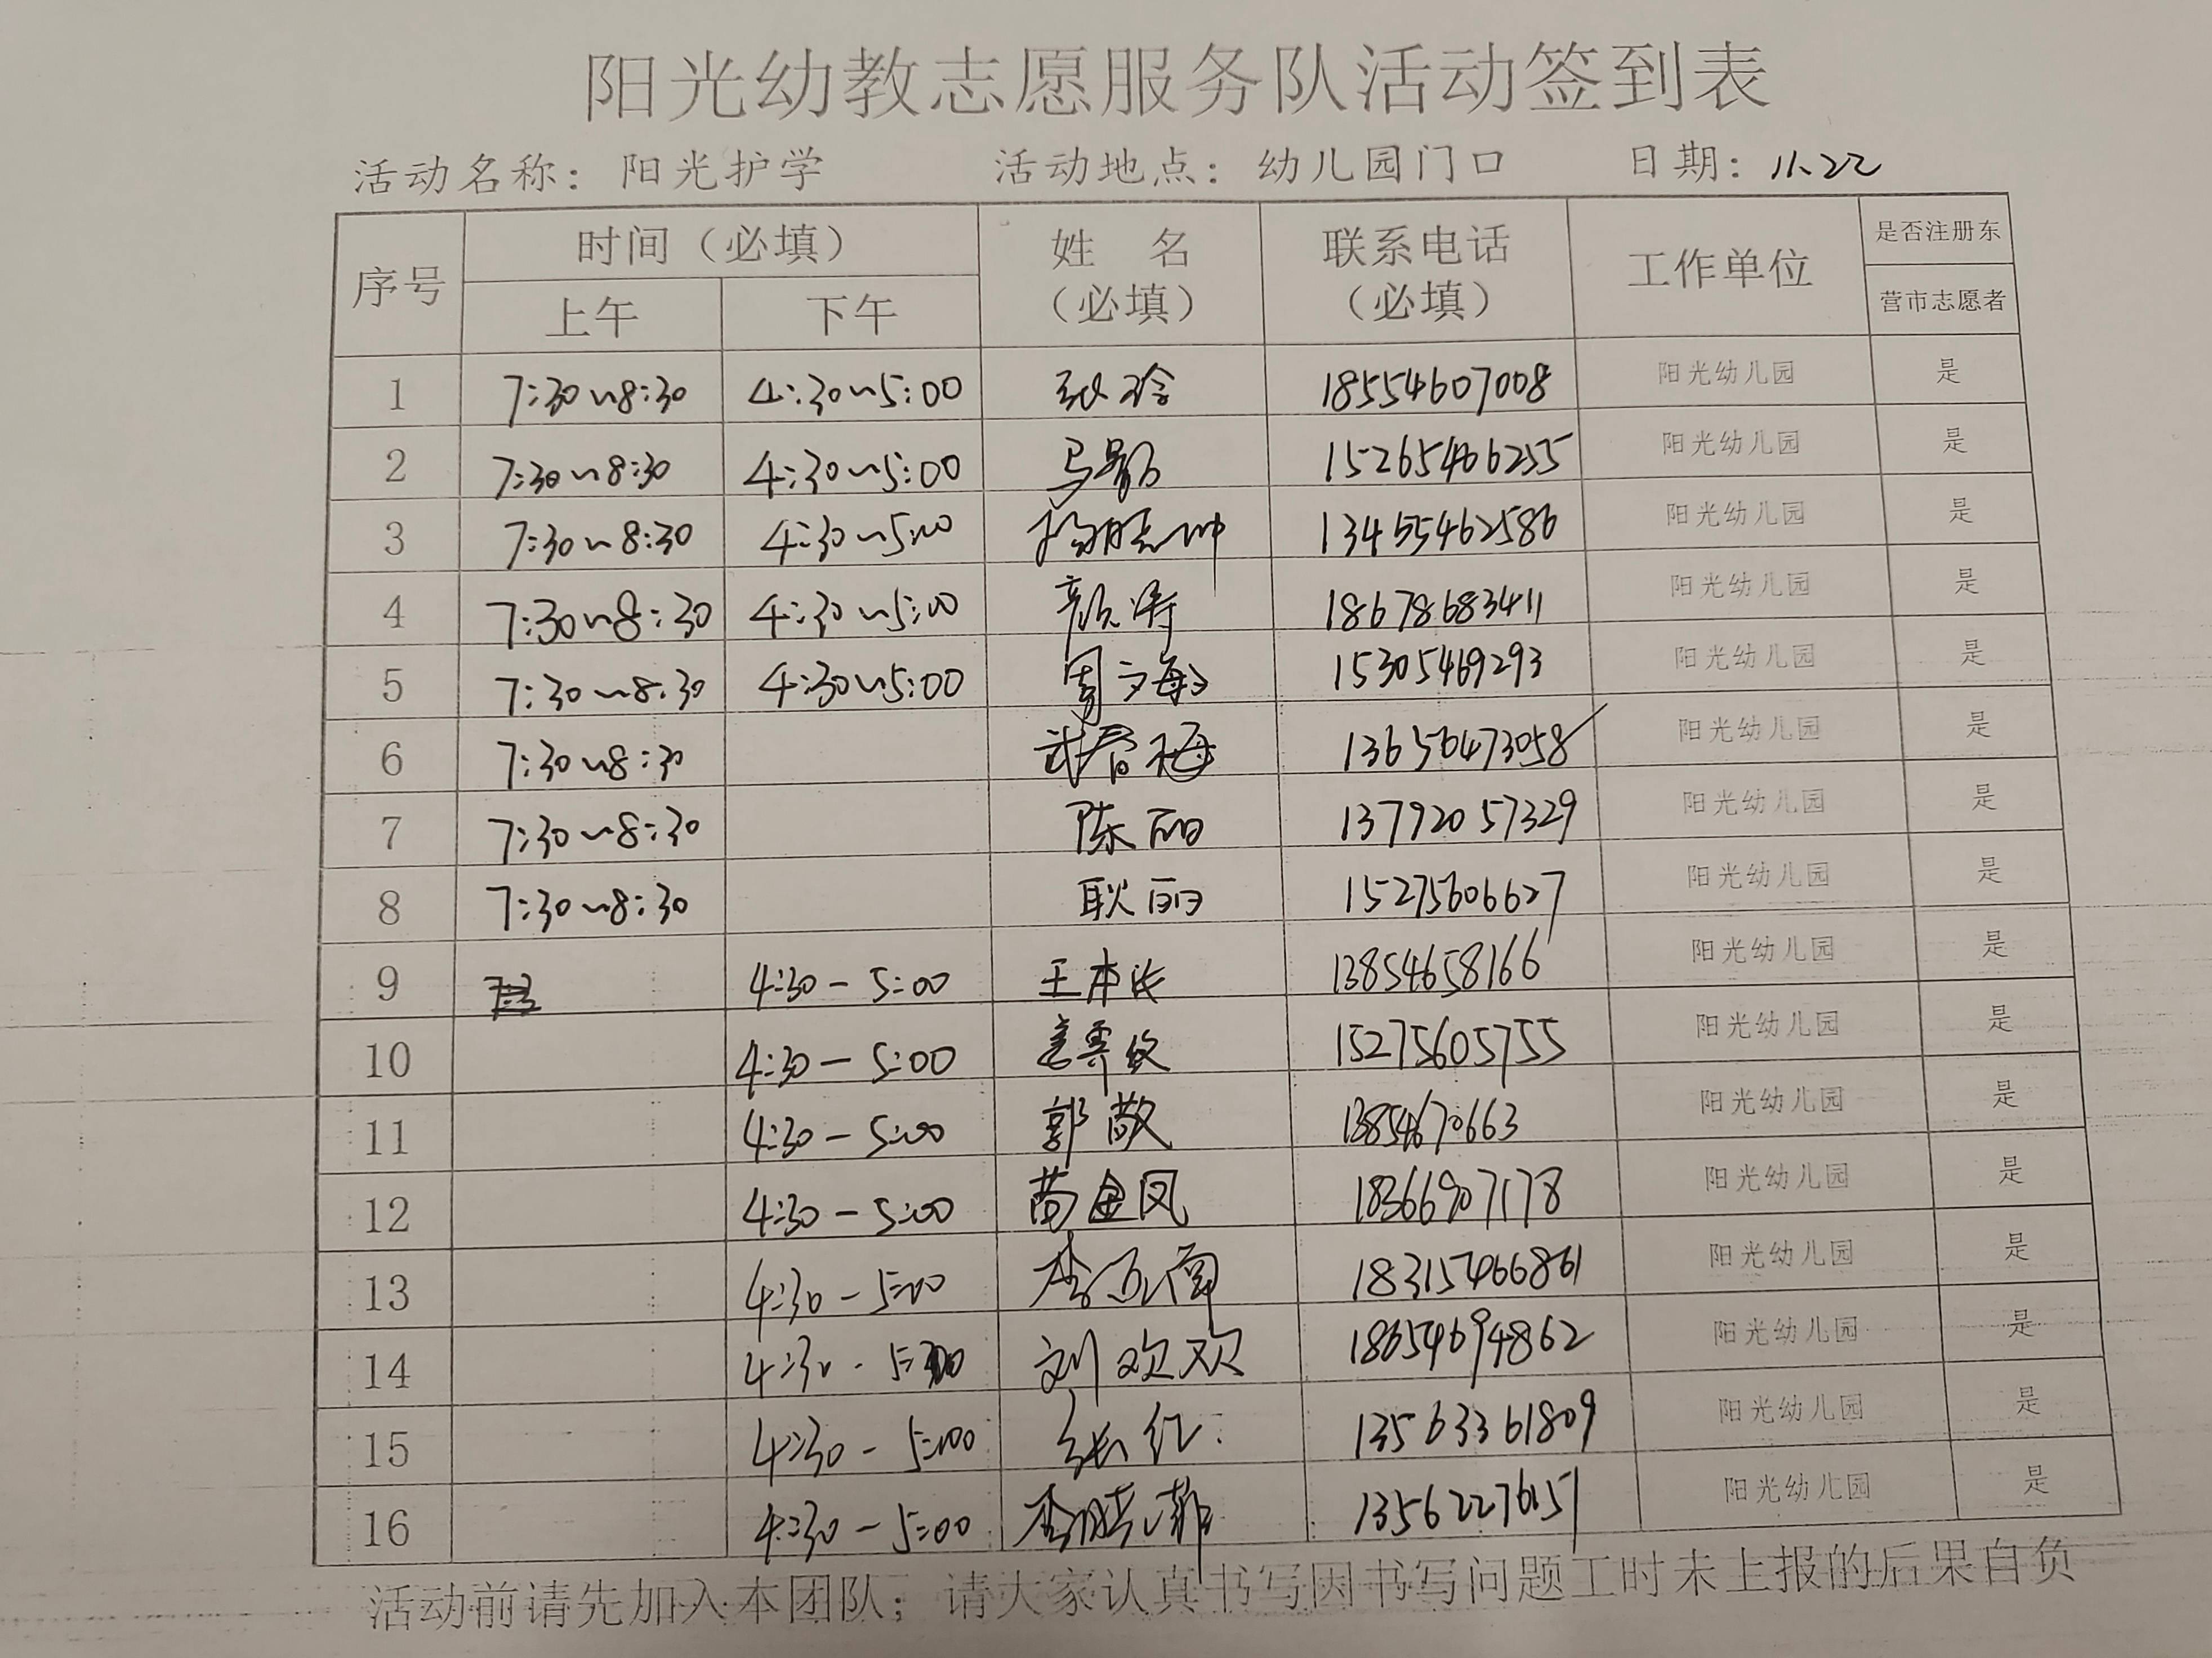 阳光幼教志愿服务队活动签到表
活动名称：阳光护学 活动地点：幼儿园门口 日期：11.22
序号 时间（必填） 姓 名（必填） 联系电话（必填） 工作单位 是否注册东营市志愿者
上午 下午
1 7:30~8:30 4:30~5:00 张玲 18554607008 阳光幼儿园 是
2 7:30~8:30 4:30~5:00 15265466255 阳光幼儿园 是
3 7:30~8:30 4:30~5:00 13465462586 阳光幼儿园 是
4 7:30~8:30 4:30~5:00 颜涛 18678683411 阳光幼儿园 是
5 7:30~8:30 4:30~5:00 周文海 15305469293 阳光幼儿园 是
6 7:30~8:30 武春梅 13656473058 阳光幼儿园 是
7 7:30~8:30 陈丽 13792057329 阳光幼儿园 是
8 7:30~8:30 耿丽 15275606627 阳光幼儿园 是
9 4:30-5:00 王本长 13854658166 阳光幼儿园 是
10 4:30-5:00 15275605755 阳光幼儿园 是
11 4:30-5:00 郭敬 13854670663 阳光幼儿园 是
12 4:30-5:00 苗金凤 18366907178 阳光幼儿园 是
13 4:30-5:00 18315466861 阳光幼儿园 是
14 4:30-5:00 刘欢欢 18654694862 阳光幼儿园 是
15 4:30-5:00 张红 13563361809 阳光幼儿园 是
16 4:30-5:00 李晓菲 13562276151 阳光幼儿园 是
活动前请先加入本团队；请大家认真书写因书写问题工时未上报的后果自负